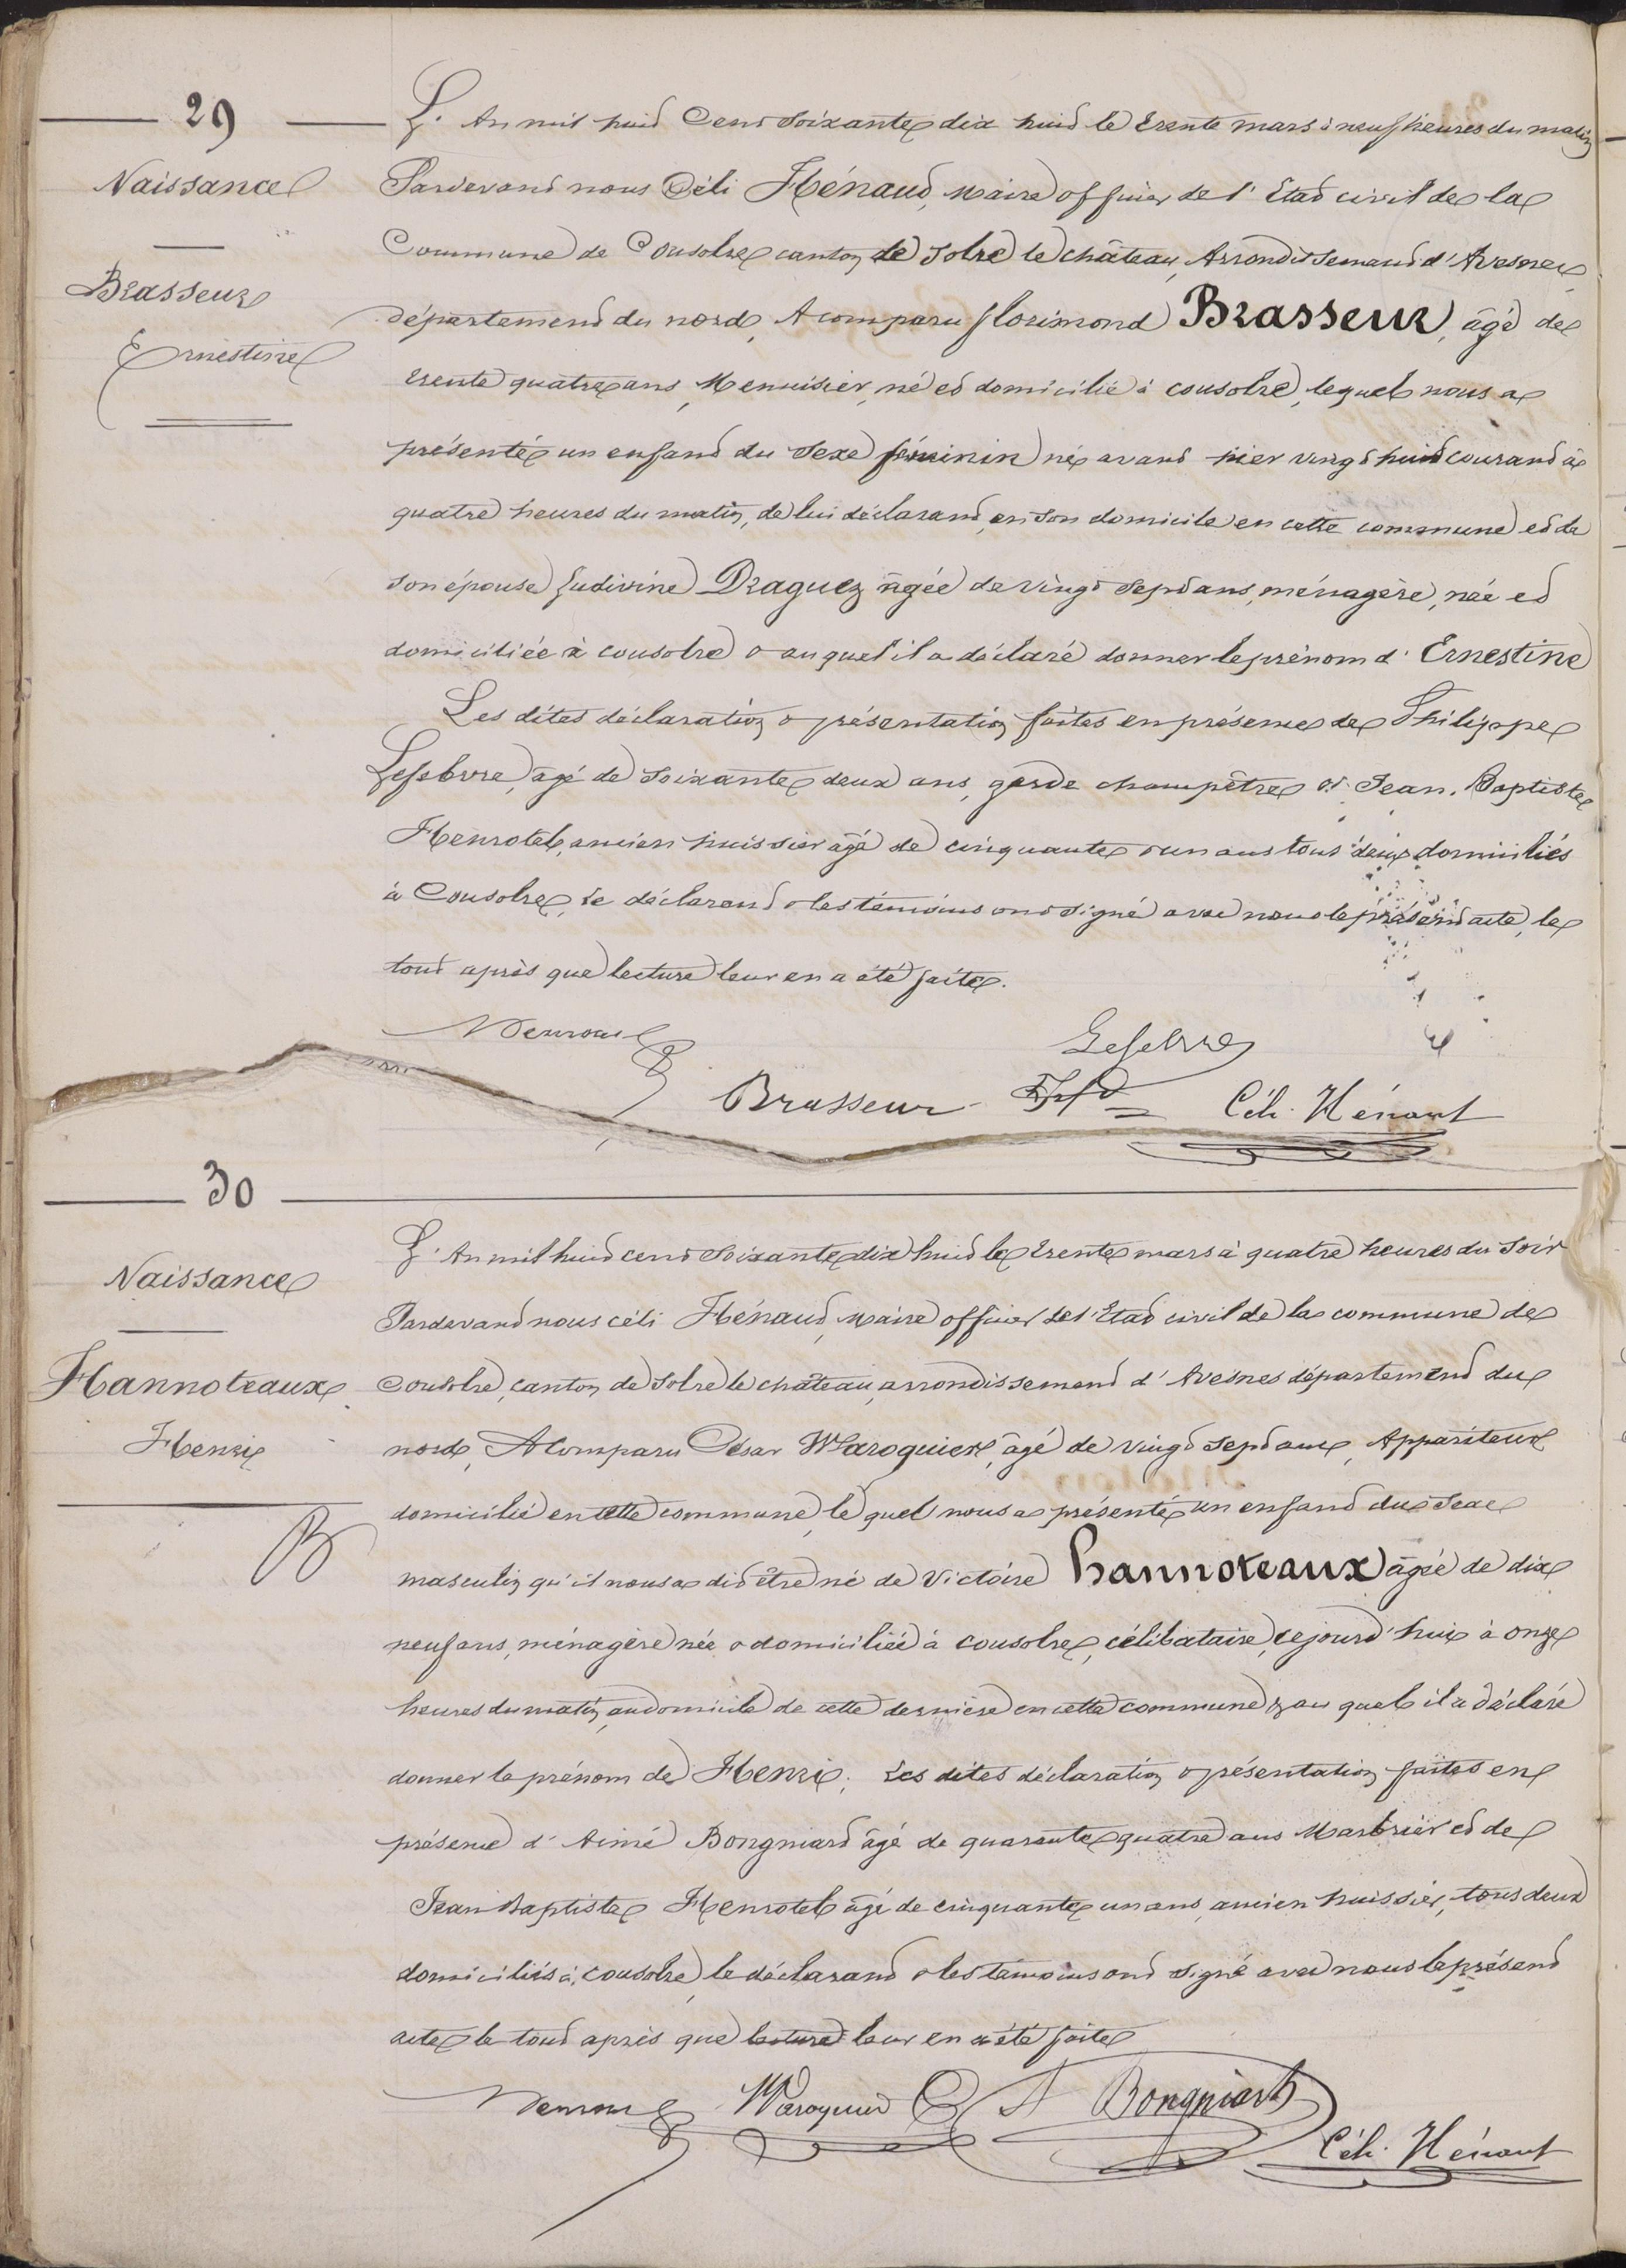 29
Naissance
Brasseur
Ernestine
L'An mil huit Cent Soixante dix huit le trente mars à neuf heures du matin
Pardevant nous Céli Hénaut, Maire officier de l'Etat civil de la
Commune de Cousolre canton de Solre le château, Arrondissement d'Avesnes
département du nord, A comparu florimond Brasseur, âgé de
trente quatre ans, Menuisier, né et domicilié à cousolre, lequel nous a
présenté un enfant du Sexe féminin né avant hier vingt huit courant à
quatre heures du matin, de lui déclarant, en son domicile en cette commune et de
son épouse Ludivine Draguez âgée de vingt Sept ans, ménagère, née et
domiciliée à cousolre & auquel il a déclaré donner le prénom d'Ernestine
Les dites déclaration & présentation faites en présence de Philippe
Lefebvre, âgé de Soixante deux ans, garde champêtre et Jean Baptiste
Henrotel, ancien huissier âgé de cinquante & un ans tous deux domiciliés
à Cousolre, Le déclarant & les témoins ont signé avec nous le présent acte, le
tout après que lecture leur en a été faite.
Lefebvre
Brasseur Céli Hénaut
30
Naissance
Hannoteaux
Henri
L'An mil huit cent Soixante dix huit le trente mars à quatre heures du Soir
Pardevant nous céli Hénaut, Maire officier de l'Etat civil de la commune de
Cousolre, canton de Solre le château, arrondissement d'Avesnes département du
nord, A Comparu César Waroquier, âgé de vingt Sept ans, Appariteur
domicilié en cette commune, le quel nous a présenté un enfant du Sexe
masculin qu'il nous a dit être né de Victoire hannoteaux âgée de dix
neuf ans, ménagère née & domiciliée à cousolre, célibataire, cejourd'hui à onze
heures du matin, au domicile de cette dernière en cette commune, & au quel il a déclaré
donner le prénom de Henri. Les dites déclaration & présentation faites en
présence d'Aimé Bongniard âgé de quarante quatre ans Marbrier et de
Jean Baptiste Henrotel âgé de cinquante un ans, ancien huissier, tous deux
domiciliés à cousolre, le déclarant & les témoins ont signé avec nous le présent
acte le tout après que lecture leur en a été faite
Waroquier A Bongniart
Céli Hénaut